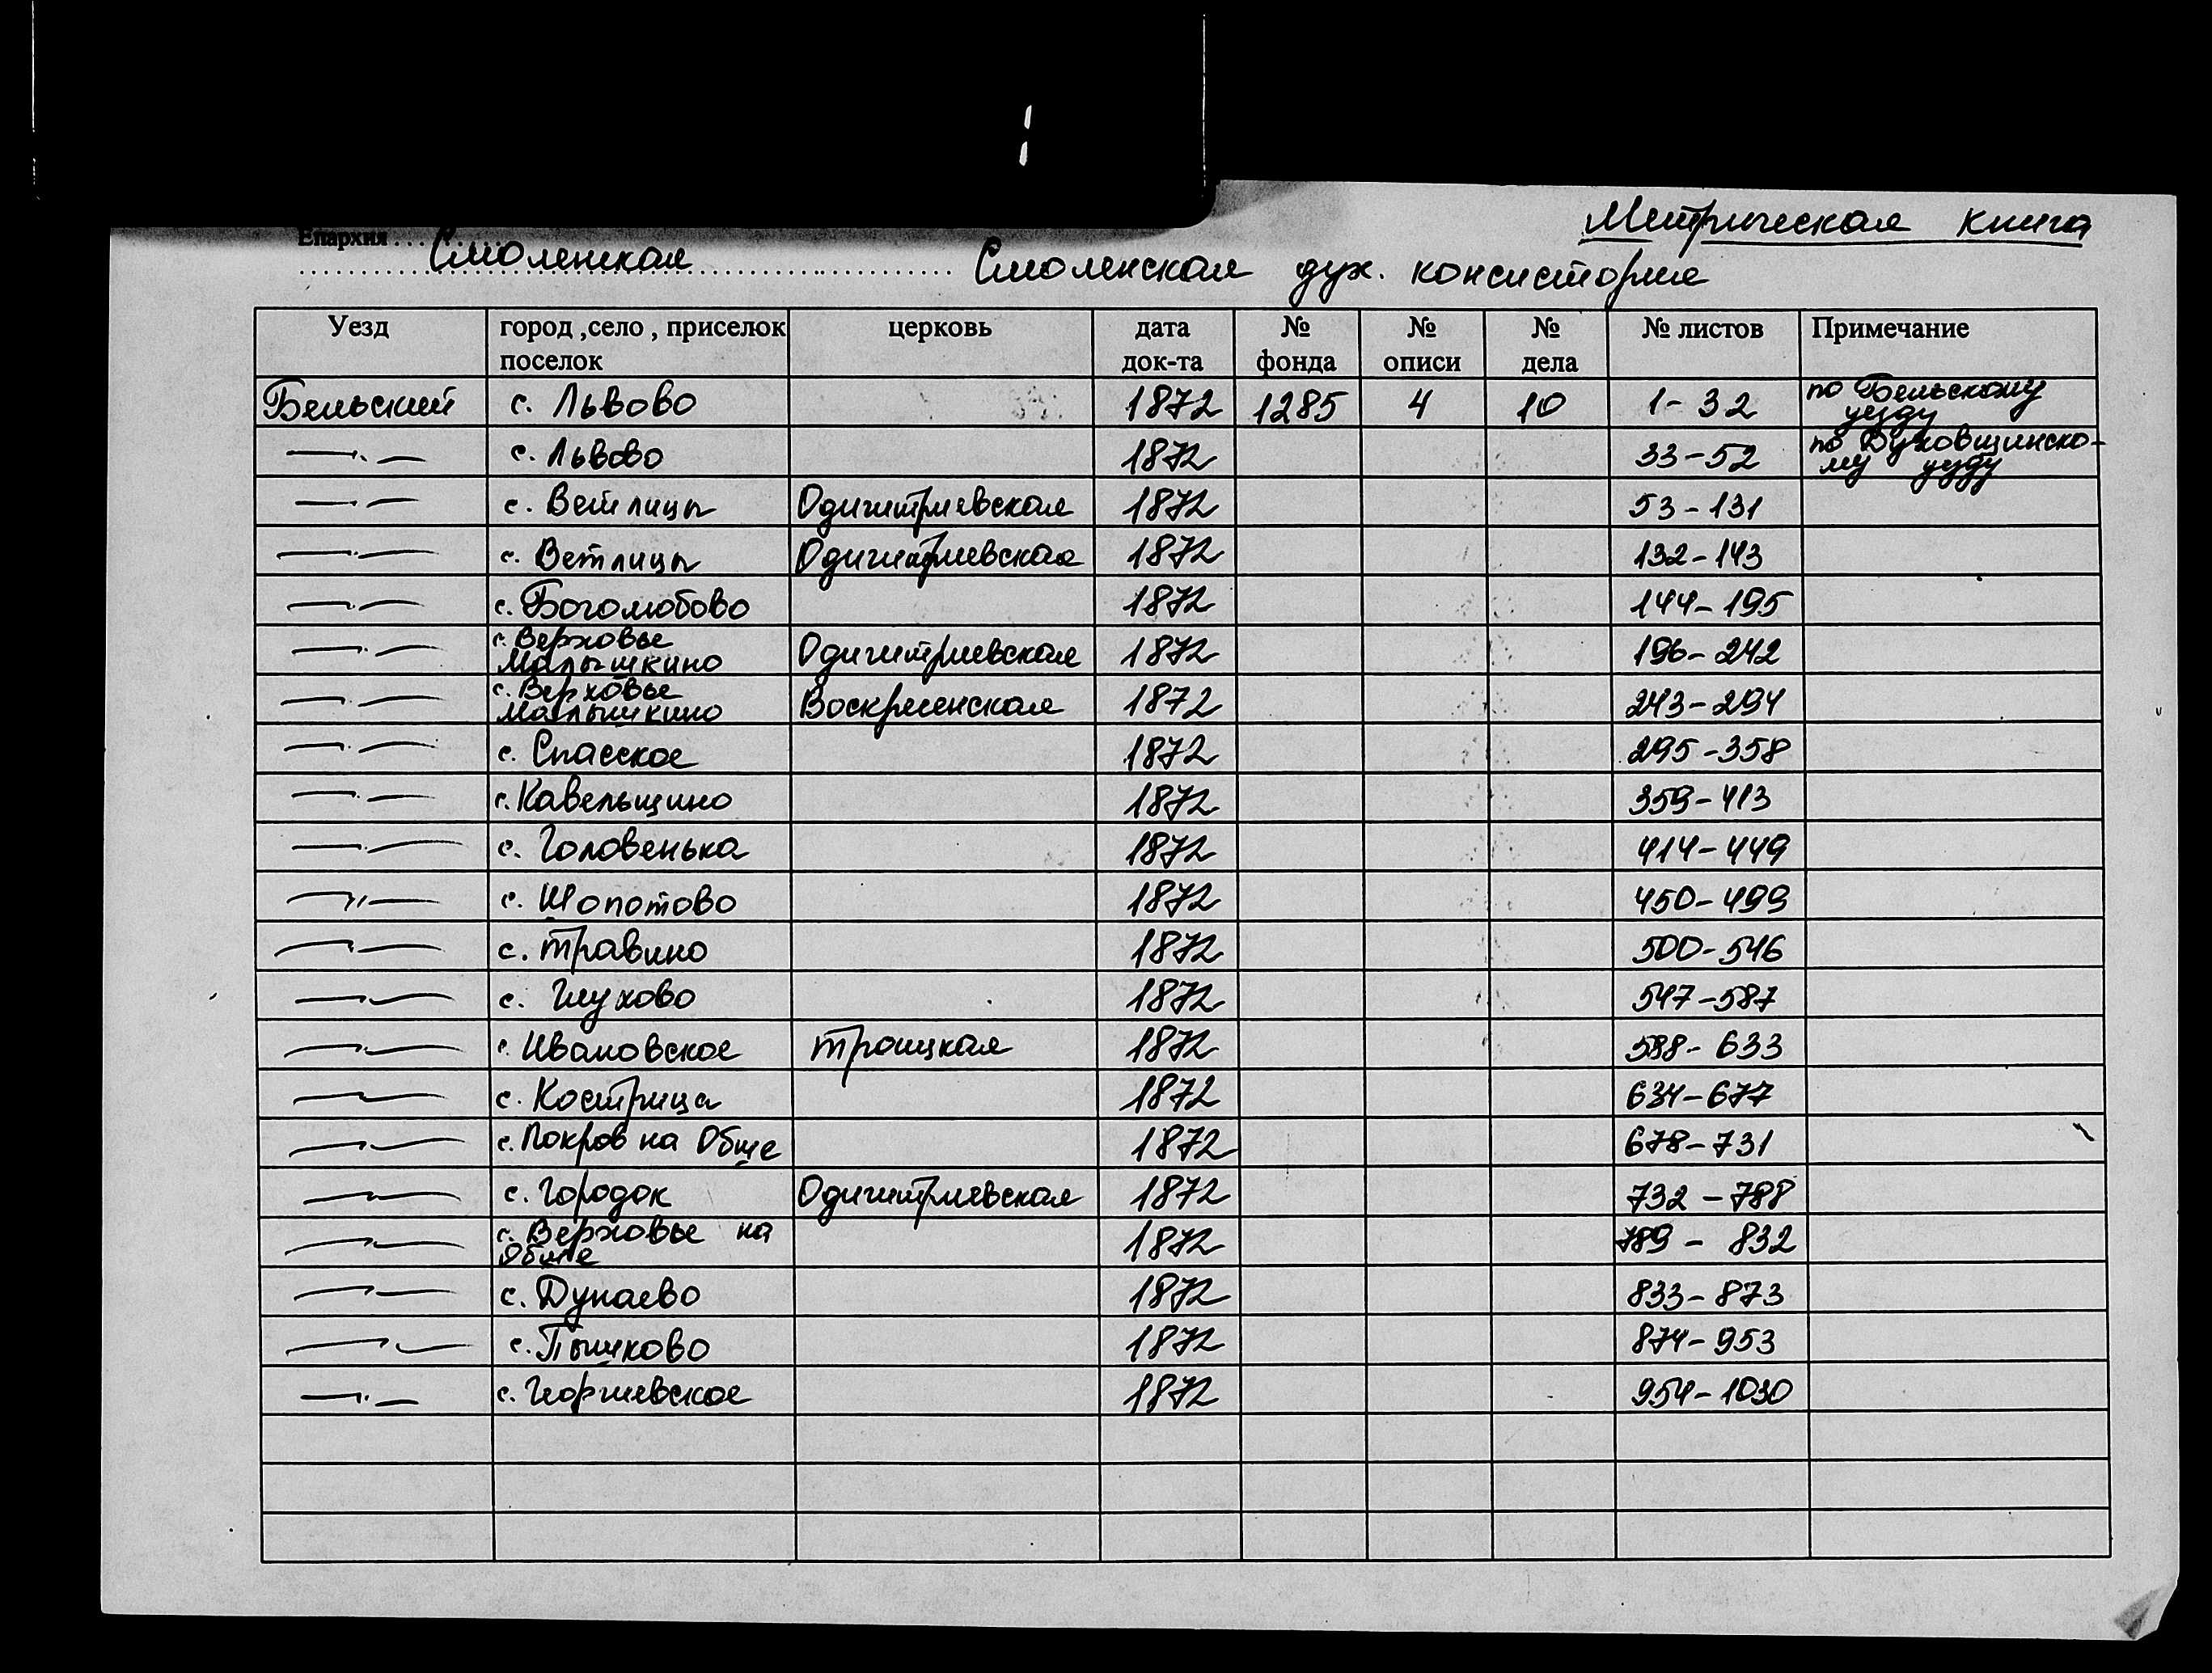 Метрическая книга
Епархия ..........
Смоленская Смоленская дух. консистория
Уезд город ,село , приселок поселок церковь дата док-та № фонда № описи № дела № листов Примечание
Бельский с. Львово 1872 1285 4 10 1-32 по Бельскому уезду
—·— с. Львово 1872 33-52 по Духовщинско-му уезду
—·— с. Ветлицы Одигитриевская 1872 53-131
—·— с. Ветлицы Одигитриевская 1872 132-143
—·— с. Боголюбово 1872 144-195
—·— с. Верховье Малышкино Одигитриевская 1872 196-242
—·— с. Верховье Малышкино Воскресенская 1872 243-294
—·— с. Спасское 1872 295-358
—·— с. Кавельщино 1872 359-413
—·— с. Головенька 1872 414-449
—"— с. Шопотово 1872 450-499
—·— с. Травино 1872 500-546
—·— с. Глухово 1872 547-587
—·— с. Ивановское Троицкая 1872 588-633
—·— с. Кострица 1872 634-677
—·— с. Покров на Обше 1872 678-731
—·— с. Городок Одигитриевская 1872 732-788
—·— с. Верховье на Обше 1872 789-832
—·— с. Дунаево 1872 833-873
—·— с. Пышково 1872 874-953
—·— с. Георгиевское 1872 954-1030